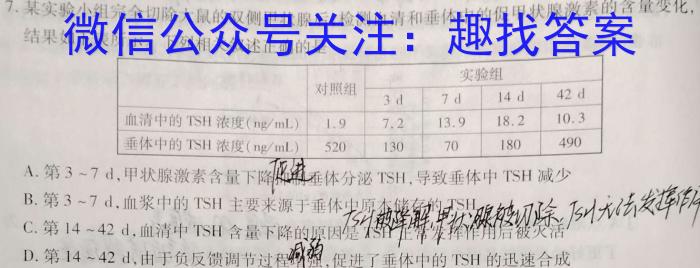 7.某实验小组完全切除大鼠的双侧甲状腺,检测血清和垂体中的促甲状腺激素的含量变化,
微信公众号关注：趣找答案
结果如
对照组 实验组
3 d 7 d 14 d 42 d
血清中的 TSH 浓度(ng/mL) 1.9 7.2 13.9 18.2 10.3
垂体中的 TSH 浓度(ng/mL) 520 130 70 180 490
促进
A. 第 3 ~ 7 d,甲状腺激素含量下降抑制垂体分泌 TSH,导致垂体中 TSH 减少
B. 第 3 ~ 7 d,血浆中的 TSH 主要来源于垂体中原本储存的 TSH
TSH被降解,甲状腺被切除、TSH无法发挥作用
C. 第 14 ~ 42 d,血清中 TSH 含量下降的原因是 TSH 正常发挥作用后被灭活
减弱
D. 第 14 ~ 42 d,由于负反馈调节过程增强,促进了垂体中的 TSH 的迅速合成